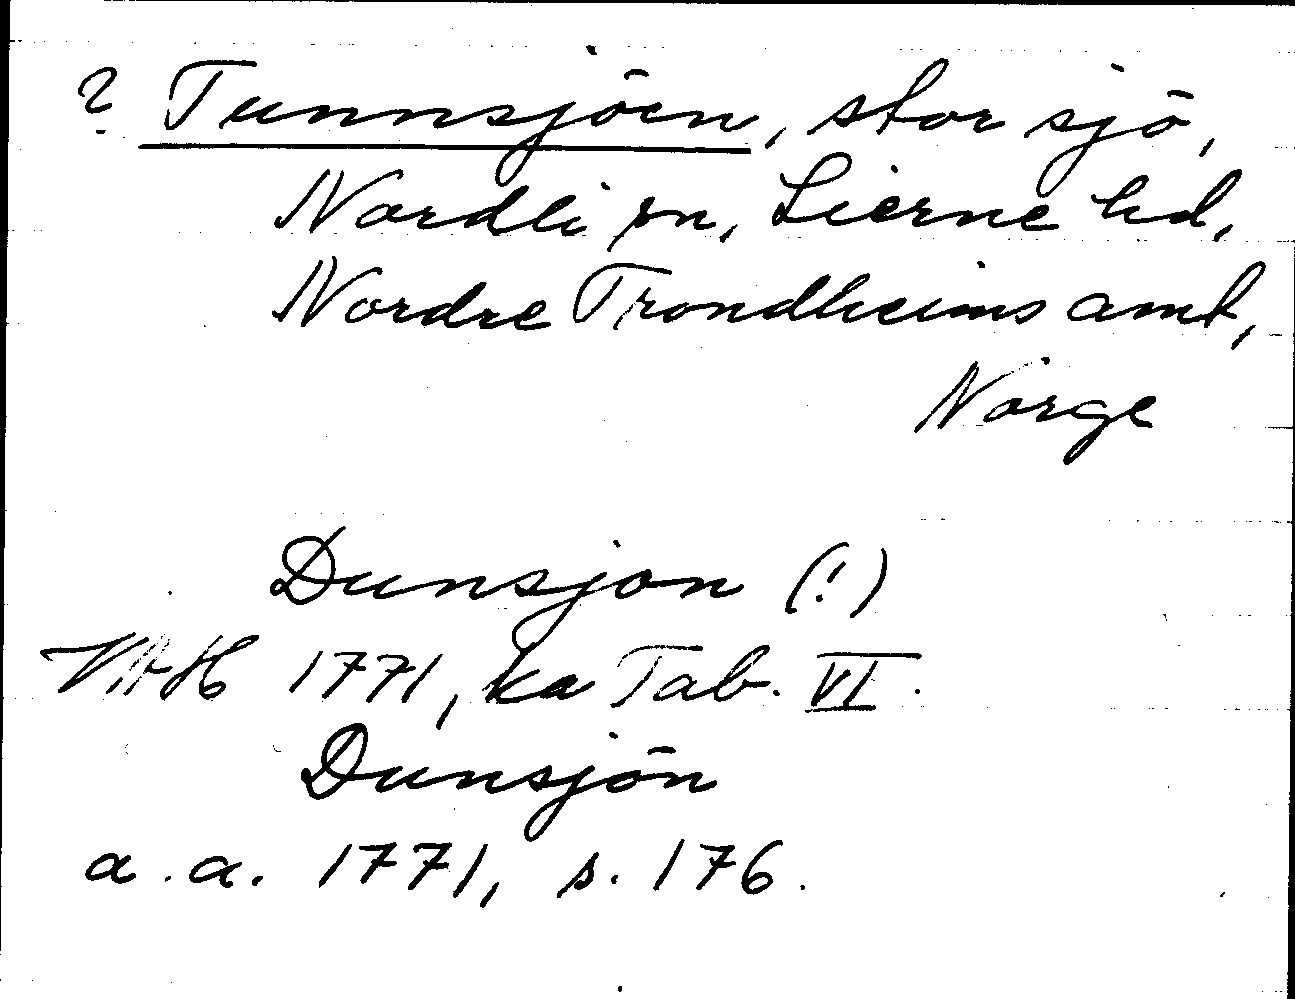 ? Tunnsjöen, stor sjö,
Nordli sn, Lierne hd,
Nordre Trondheims amt,
Norge
Dunsjon (!)
VAH 1771, ka Tab. VI.
Dunsjön
a. a. 1771, s. 176.